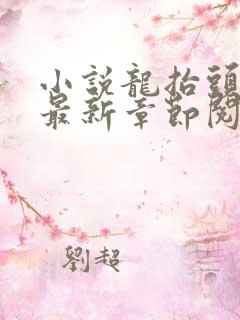 小說龍抬頭
最新章節閱
劉超